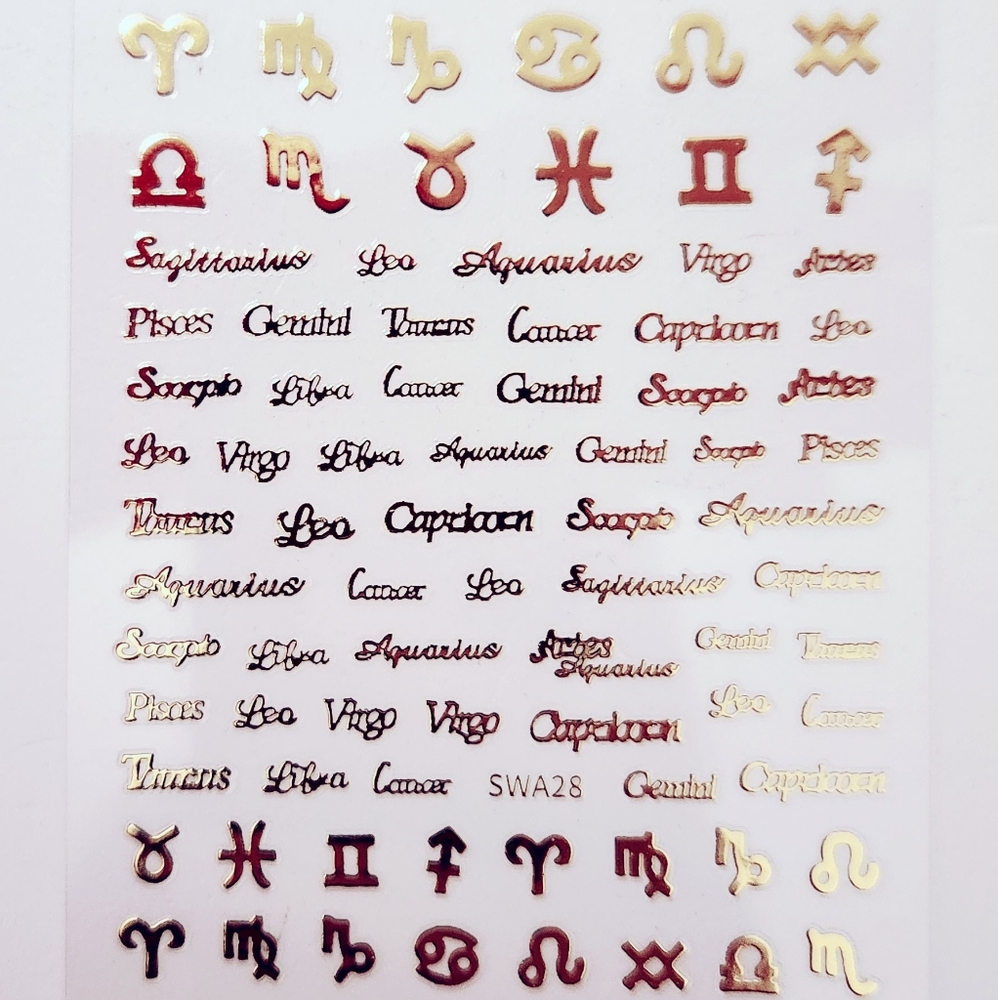 ♈ ♍ ♑ ♋ ♌ ♒
♎ ♏ ♉ ♓ ♊ ♐
Sagittarius Leo Aquarius Virgo Aries
Pisces Gemini Taurus Cancer Capricorn Leo
Scorpio Libra Cancer Gemini Scorpio Aries
Leo Virgo Libra Aquarius Gemini Scorpio Pisces
Taurus Leo Capricorn Scorpio Aquarius
Aquarius Cancer Leo Sagittarius Capricorn
Scorpio Libra Aquarius Aries Aquarius Gemini Taurus
Pisces Leo Virgo Virgo Capricorn Leo Cancer
Taurus Libra Cancer SWA28 Gemini Capricorn
♉ ♓ ♊ ♐ ♈ ♍ ♑ ♌
♈ ♍ ♑ ♋ ♌ ♒ ♎ ♏